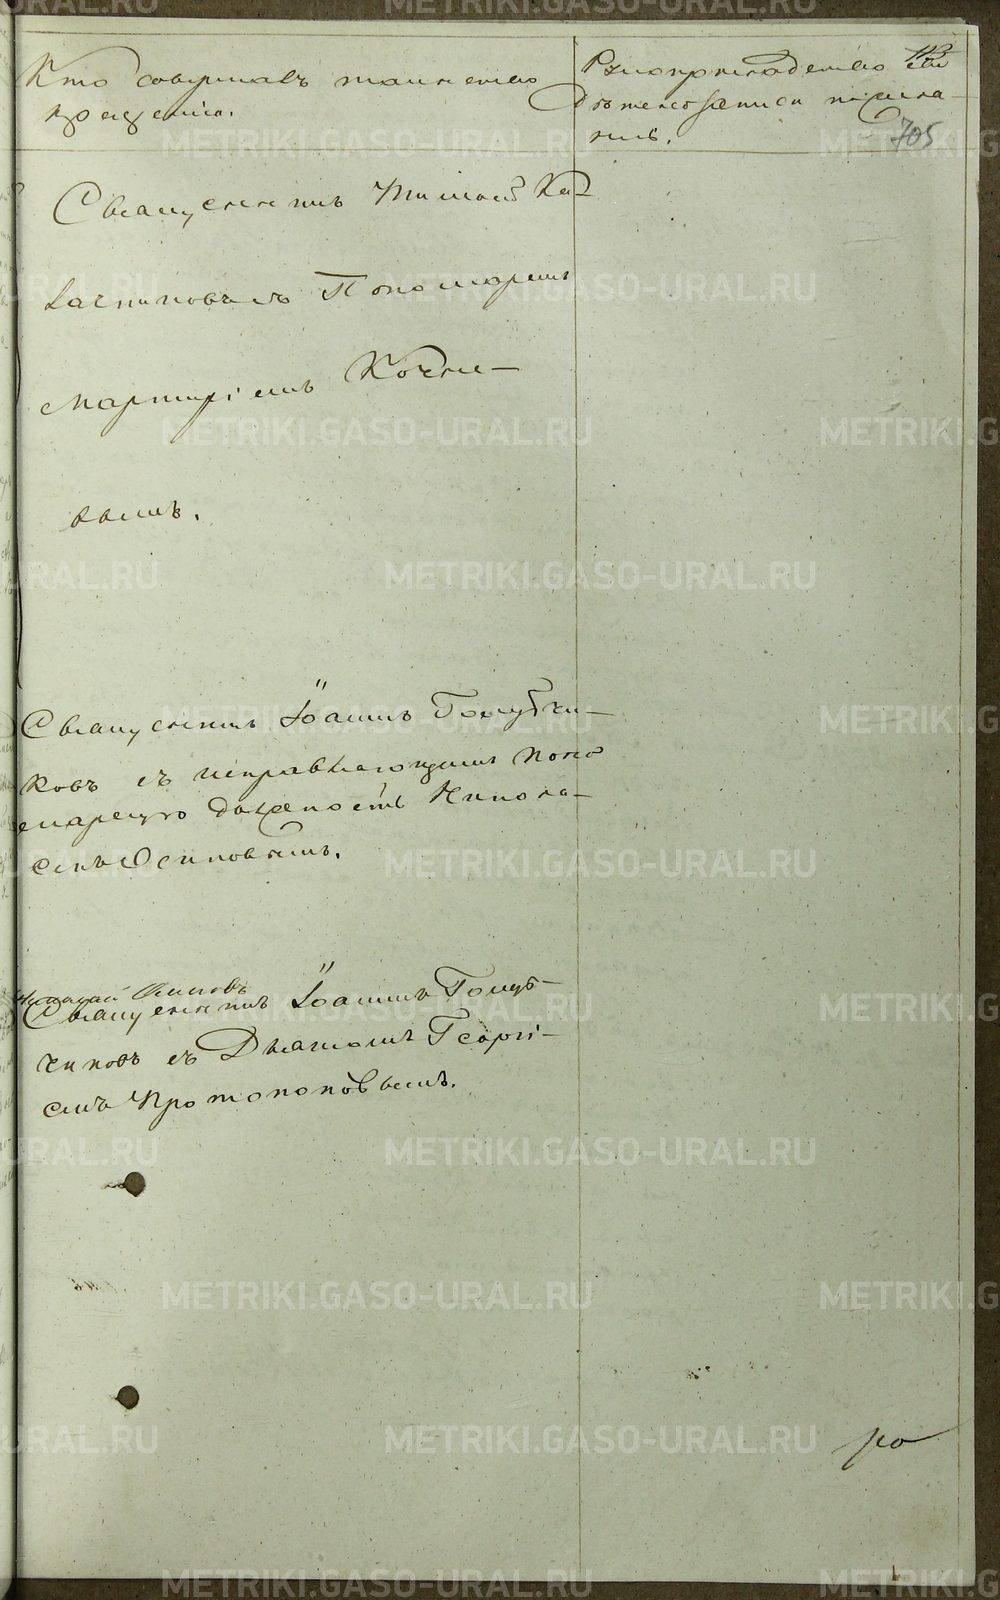 Кто совершалъ таинство
крещенія.
Рукоприкладство сви
дѣтелей записи по жела-
нію.
113
705
Священникъ Тимофей Ка-
зачинковъ съ Пономаремъ
Мартиріемъ Кочне-
вымъ.
Священникъ Іоаннъ Голубчи-
ковъ съ исправляющимъ поно
марскую должность Никола-
емъ Осиповымъ.
Николай Осиповъ
Священникъ Іоаннъ Голуб-
чиковъ съ Діакономъ Георгі-
емъ Протопоповымъ.
METRIKI.GASO-URAL.RU